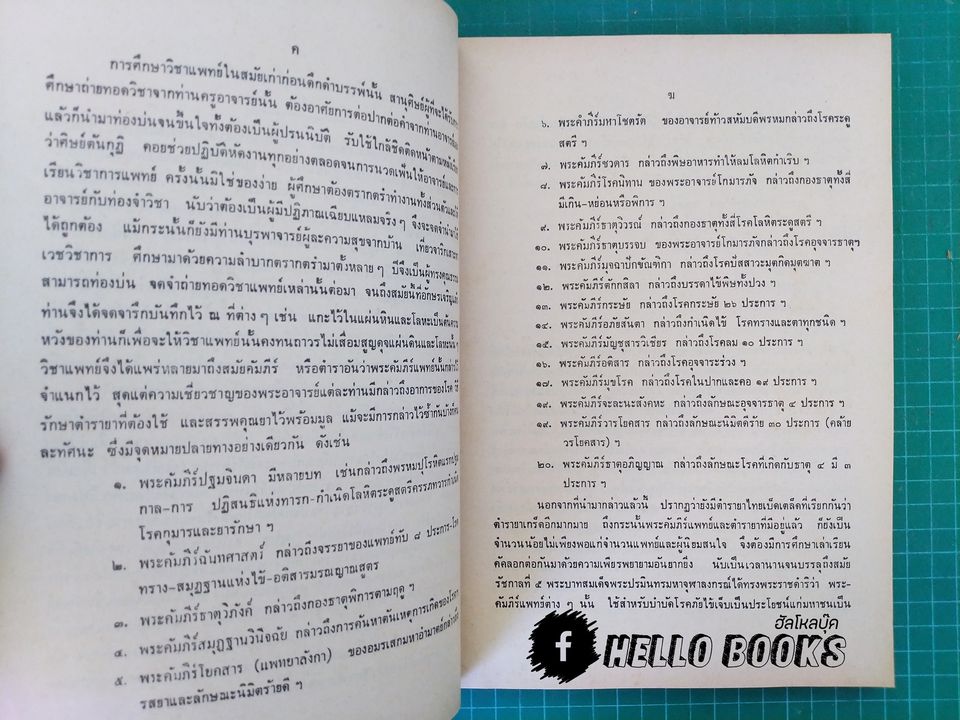 ค
การศึกษาวิชาแพทย์ในสมัยเก่าก่อนดึกดำบรรพ์นั้น สานุศิษย์ผู้ที่จะได้รับการ
ศึกษาถ่ายทอดวิชาจากท่านครูอาจารย์นั้น ต้องอาศัยการต่อปากต่อคำจากท่านอาจารย์
แล้วก็นำมาท่องบ่นจนขึ้นใจทั้งต้องเป็นผู้ปรนนิบัติ รับใช้ใกล้ชิดติดหน้าตามหลัง
ว่าศิษย์ต้นกุฏิ คอยช่วยปฏิบัติหัดงานทุกอย่างตลอดจนการนวดเฟ้นให้อาจารย์
เรียนวิชาการแพทย์ ครั้งนั้นมิใช่ของง่าย ผู้ศึกษาต้องตรากตรำทำงานทั้งส่วนตัว
อาจารย์กับท่องจำวิชา นับว่าต้องเป็นผู้มีปฏิภาณเฉียบแหลมจริง ๆ จึงจะจดจำนำ
ได้ถูกต้อง แม้กระนั้นก็ยังมีท่านบุรพาจารย์ผู้ละความสุขจากบ้าน เที่ยวจาริก
เวชวิชาการ ศึกษามาด้วยความลำบากตรากตรำมาตั้งหลาย ๆ ปีจึงเป็นผู้ทรงคุณธรรม
สามารถท่องบ่น จดจำถ่ายทอดวิชาแพทย์เหล่านั้นต่อมา จนถึงสมัยนี้ที่อักษรเจริญ
ท่านจึงได้จดจาริกบันทึกไว้ ณ ที่ต่าง ๆ เช่น แกะไว้ในแผ่นหินและโลหะเป็นต้น
หวังของท่านก็เพื่อจะให้วิชาแพทย์นั้นคงทนถาวรไม่เสื่อมสูญดุจแผ่นดินและโลหะนั้น ๆ
วิชาแพทย์จึงได้แพร่หลายมาถึงสมัยคัมภีร์ หรือตำราอันว่าพระคัมภีร์แพทย์นั้นกล่าว
จำแนกไว้ สุดแต่ความเชี่ยวชาญของพระอาจารย์แต่ละท่านมีกล่าวถึงอาการของโรค วิธี
รักษาตำรายาที่ต้องใช้ และสรรพคุณยาไว้พร้อมมูล แม้จะมีการกล่าวไว้ซ้ำกันบ้าง
ละทัศนะ ซึ่งมีจุดหมายปลายทางอย่างเดียวกัน ดังเช่น
๑. พระคัมภีร์ปฐมจินดา มีหลายบท เช่นกล่าวถึงพรหมปุโรหิตแรก
กาล-การ ปฏิสนธิแห่งทารก-กำเนิดโลหิตระดูสตรีครรภทวารกำเนิด
โรคกุมารและยารักษา ฯ
๒. พระคัมภีร์ฉันทศาสตร์ กล่าวถึงจรรยาของแพทย์ทับ ๘ ประการ-โรค
ทราง-สมุฏฐานแห่งไข้-อติสารมรณญาณสูตร
๓. พระคัมภีร์ธาตุวิภังค์ กล่าวถึงกองธาตุพิการตามฤดู ฯ
๔. พระคัมภีร์สมุฏฐานวินิจฉัย กล่าวถึงการค้นหาต้นเหตุการเกิดของโรค
๕. พระคัมภีร์โยคสาร (แพทยาลังกา) ของอมรเสกมหาอำมาตย์กล่าวถึง
รสยาและลักษณะนิมิตร้ายดี ฯ
ฆ
๖. พระคำภีร์มหาโชตรัต ของอาจารย์ท้าวสหัมบดีพรหมกล่าวถึงโรคระดู
สตรี ฯ
๗. พระคัมภีร์ชวดาร กล่าวถึงพิษอาหารทำให้ลมโลหิตกำเริบ ฯ
๘. พระคัมภีร์โรคนิทาน ของพระอาจารย์โกมารภัจ กล่าวถึงกองธาตุทั้งสี่
มีเกิน-หย่อนหรือพิการ ฯ
๙. พระคัมภีร์ธาตุวิวรณ์ กล่าวถึงกองธาตุทั้งสี่โรคโลหิตระดูสตรี ฯ
๑๐. พระคัมภีร์ธาตุบรรจบ ของพระอาจารย์โกมารภัจกล่าวถึงโรคอุจจารธาตุฯ
๑๑. พระคัมภีร์มุจฉาปักขันฑิกา กล่าวถึงโรคปัสสาวะมุตกิดมุตฆาต ฯ
๑๒. พระคัมภีร์ตักกสิลา กล่าวถึงบรรดาไข้พิษทั้งปวง ฯ
๑๓. พระคัมภีร์กระษัย กล่าวถึงโรคกระษัย ๒๖ ประการ ฯ
๑๔. พระคัมภีร์อภัยสันตา กล่าวถึงกำเนิดไข้ โรคทรางและตาทุกชนิด ฯ
๑๕. พระคัมภีร์มัญชุสารวิเชียร กล่าวถึงโรคลม ๑๐ ประการ ฯ
๑๖. พระคัมภีร์อติสาร กล่าวถึงโรคอุจจาระร่วง ฯ
๑๗. พระคัมภีร์มุขโรค กล่าวถึงโรคในปากและคอ ๑๙ ประการ ฯ
๑๘. พระคัมภีร์จะละนะสังคหะ กล่าวถึงลักษณะอุจจารธาตุ ๔ ประการ ฯ
๑๙. พระคัมภีร์วารโยคสาร กล่าวถึงลักษณะนิมิตดีร้าย ๓๐ ประการ (คล้าย
วรโยคสาร) ฯ
๒๐. พระคัมภีร์ธาตุอภิญญาณ กล่าวถึงลักษณะโรคที่เกิดกับธาตุ ๔ มี ๓
ประการ ฯ
นอกจากที่นำมากล่าวแล้วนี้ ปรากฏว่ายังมีตำรายาไทยเบ็ดเตล็ดที่เรียกกันว่า
ตำรายาเกร็ดอีกมากมาย ถึงกระนั้นพระคัมภีร์แพทย์และตำรายาที่มีอยู่แล้ว ก็ยังเป็น
จำนวนน้อยไม่เพียงพอแก่จำนวนแพทย์และผู้นิยมสนใจ จึงต้องมีการศึกษาเล่าเรียน
คัดลอกต่อกันมาด้วยความเพียรพยายามอันยากยิ่ง นับเป็นเวลานานจนบรรลุถึงสมัย
รัชกาลที่ ๕ พระบาทสมเด็จพระปรมินทรมหาจุฬาลงกรณ์ได้ทรงพระราชดำริว่า พระ-
คัมภีร์แพทย์ต่าง ๆ นั้น ใช้สำหรับบำบัดโรคภัยไข้เจ็บเป็นประโยชน์แก่มหาชนเป็น
ฮัลโหลบุ๊ค
f HELLO BOOKS